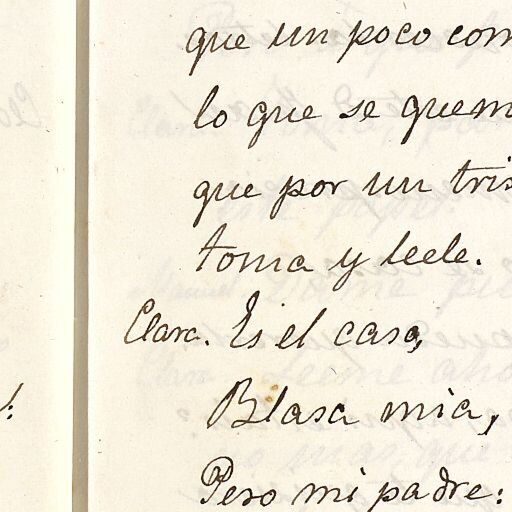 que un poco com
lo que se quem
que por un tris
toma y leele.
Clara. Es el caso,
Blasa mia,
Pero mi padre: